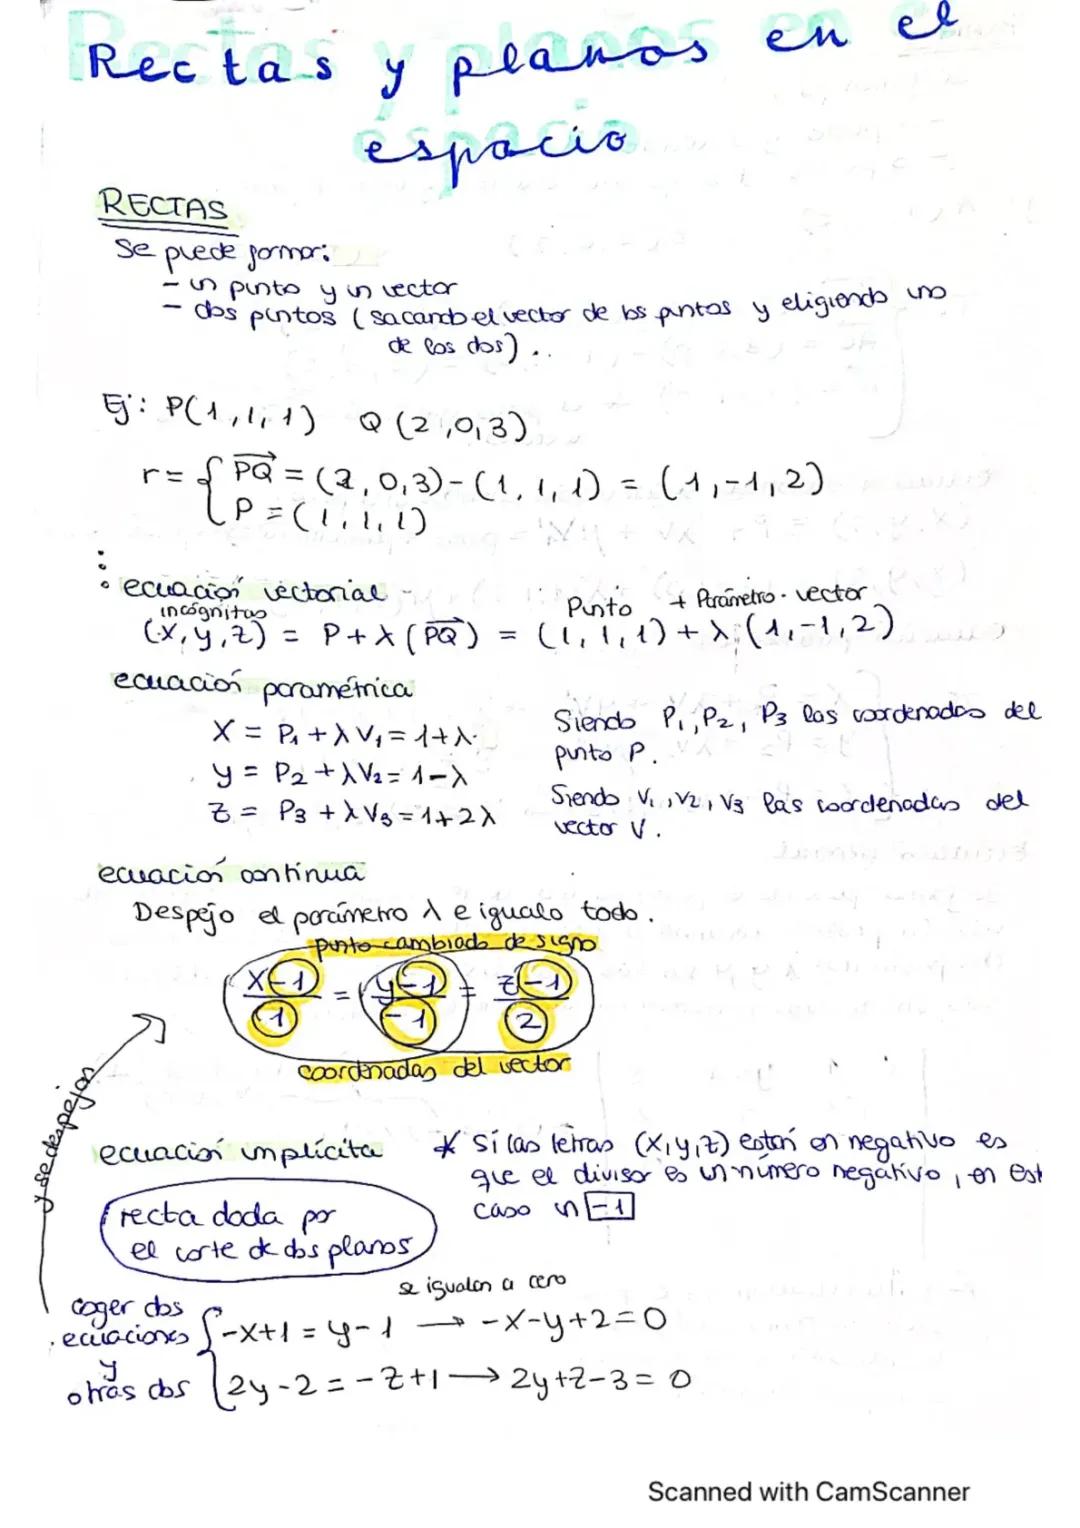 Rectas y planos en el
espacio
RECTAS
Se puede formar:
- un punto y un vector
- dos puntos (sacando el vector de los puntos y eligiendo uno
de los dos)..
Ej: P(1,1,1) Q(2,0,3)
r = { PQ = (2,0,3)-(1,1,1) = (1,-1,2)
P = (1,1,1)
ecuación vectorial
incógnitas Punto + Parámetro · vector
(x,y,z) = P+λ(PQ) = (1,1,1)+λ·(1,-1,2)
ecuación paramétrica
X = P₁+λV₁=1+λ
y = P₂+λV₂=1-λ
z = P₃+λV₃=1+2λ
Siendo P₁,P₂,P₃ las coordenadas del
punto P.
Siendo V₁,V₂,V₃ las coordenadas del
vector V.
ecuación continua
Despejo el parámetro λ e igualo todo.
punto cambiado de signo
x-1/1 = y-1/-1 = z-1/2
coordenadas del vector
y se despejan
ecuación implícita
recta dada por
el corte de dos planos
* Si las letras (x,y,z) están en negativo es
que el divisor es un número negativo, en est
caso un -1
se igualan a cero
coger dos
ecuaciones
y
otras dos
{ -x+1 = y-1 → -x-y+2=0
2y-2=-z+1 → 2y+z-3=0
Scanned with CamScanner